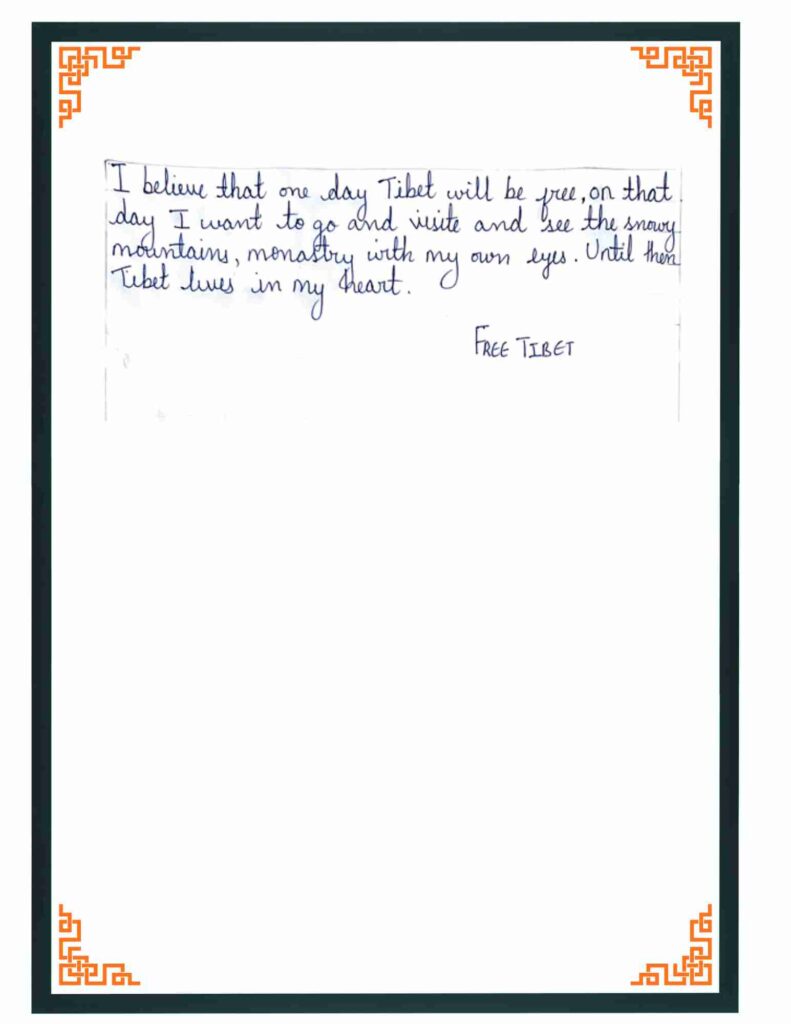 I believe that one day Tibet will be free, on that
day I want to go and visite and see the snowy
mountains, monastry with my own eyes. Until then
Tibet lives in my heart.
FREE TIBET